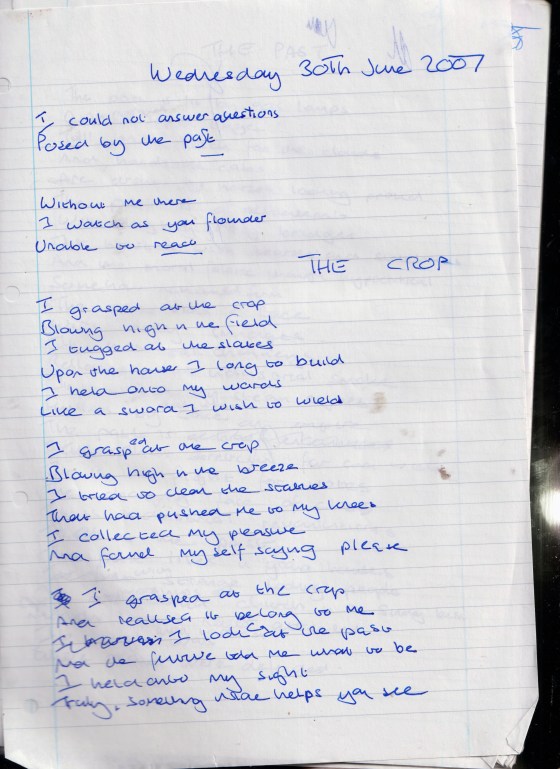 Wednesday 30Th June 2007
I could not answer questions
Posed by the past
Without me there
I watch as you flounder
Unable to reach
THE CROP
I grasped at the crop
Blowing high n the field
I tugged at the slates
Upon the house I long to build
I held onto my words
Like a sword I wish to wield
I grasped at the crop
Blowing high n the breeze
I tried to clear the
That had pushed me to my knees
I collected my pleasure
And found my self saying please
I grasped at the crop
And realised it belong to me
I I look at the past
And the future told me what to be
I held onto my sight
helps you see